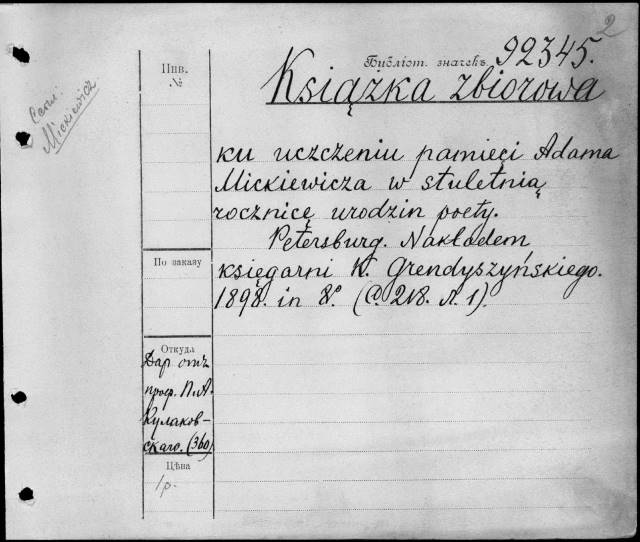 2
Библіот. значекъ 92345.
Инв.
№
Książka zbiorowa
Mickiewicz
ku uczczeniu pamięci Adama
Mickiewicza w stuletnią
rocznicę urodzin poety.
Petersburg. Nakładem
księgarni K. Grendyszyńskiego.
1898. in 8º. (С. 218. Л. 1).
По заказу
Откуда
Дар отъ
проф. Пл. А.
Кулаков-
скаго. (360)
Цѣна
1 р.